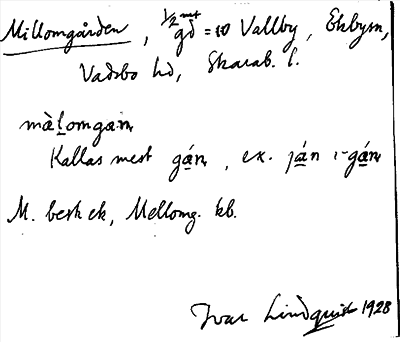 Millomgården, 1/2 mt gd = 10 Vallby, Ekbysn,
Vadsbo hd, Skarab. l.
mà̀lomgaṇ
Kallas mest gá̱ṇ, ex. já̱n ı-gá̱ṇ
M. besk ek, Mellomg. kb.
Ivar Lindquist 1928